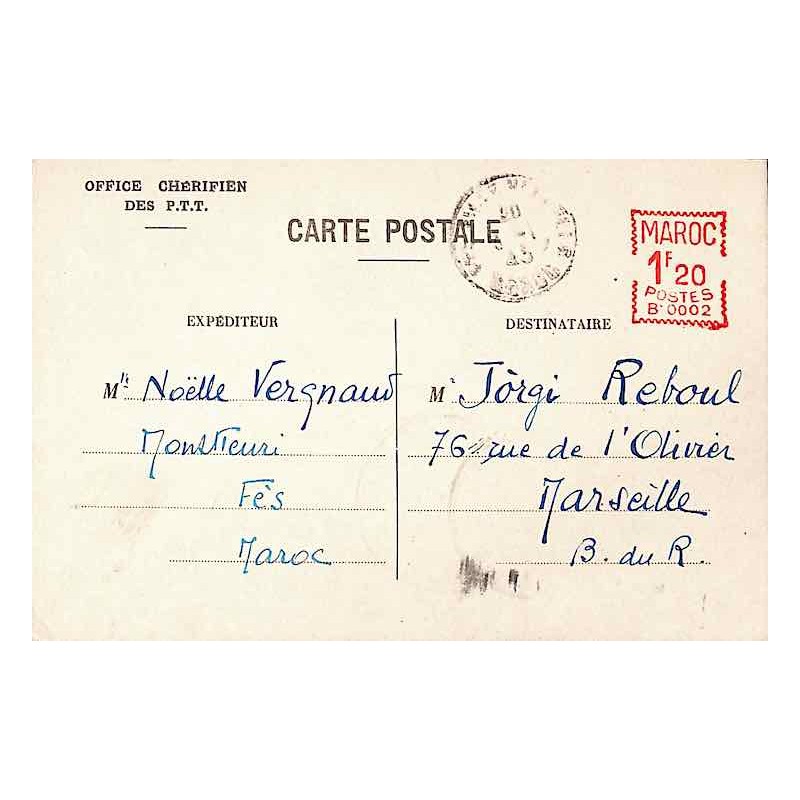 OFFICE CHÉRIFIEN
DES P.T.T.
CARTE POSTALE
MAROC
1F20
POSTES
B·0002
EXPÉDITEUR
Mlle Noëlle Vergnaud
Fès
Maroc
DESTINATAIRE
Mr Jòrgi Reboul
76 rue de l'Olivier
Marseille
B. du R.